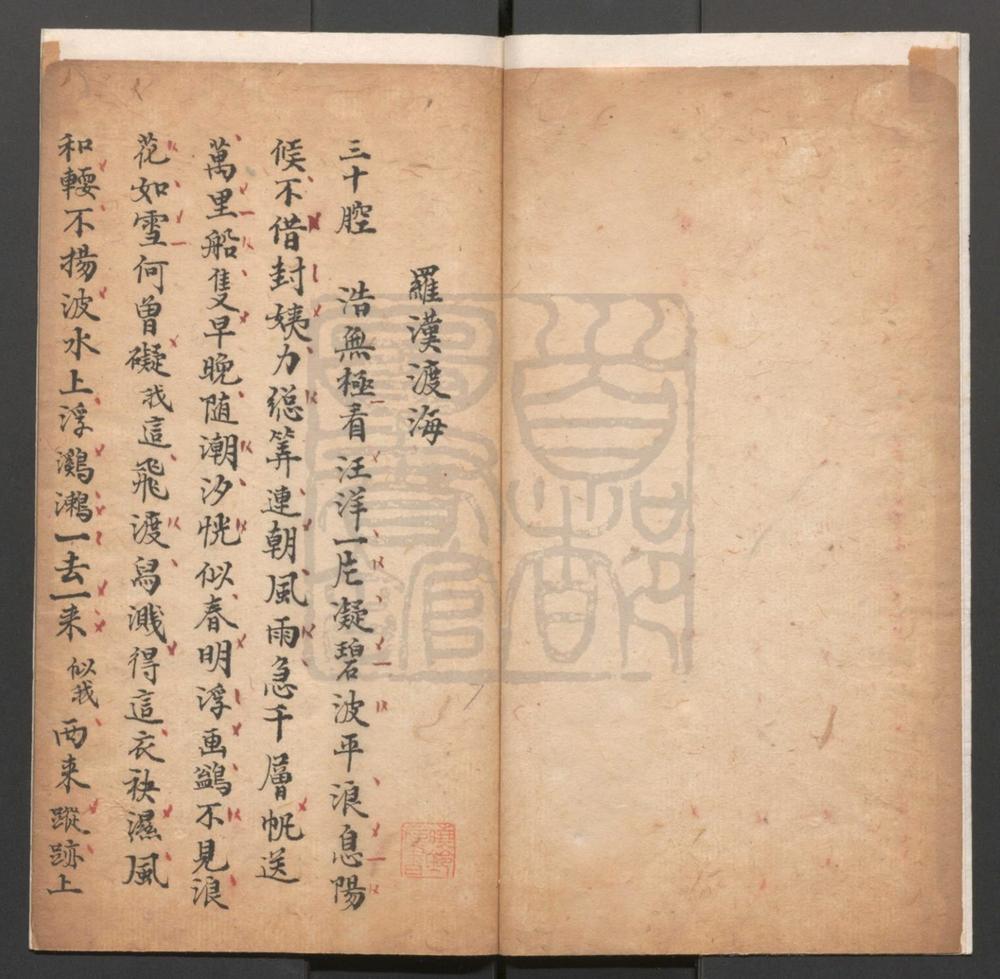 羅漢渡海
三十腔　浩無極看汪洋一片凝碧波平浪息陽
候不借封姨力總筭連朝風雨急千層帆送
萬里船隻早晚随潮汐恍似春明浮画鷁不見浪
花如雪何曾礙我這飛渡舄濺得這衣袂濕風
和輭不揚波水上浮鸂𪆟一去一来似我西来蹤跡上